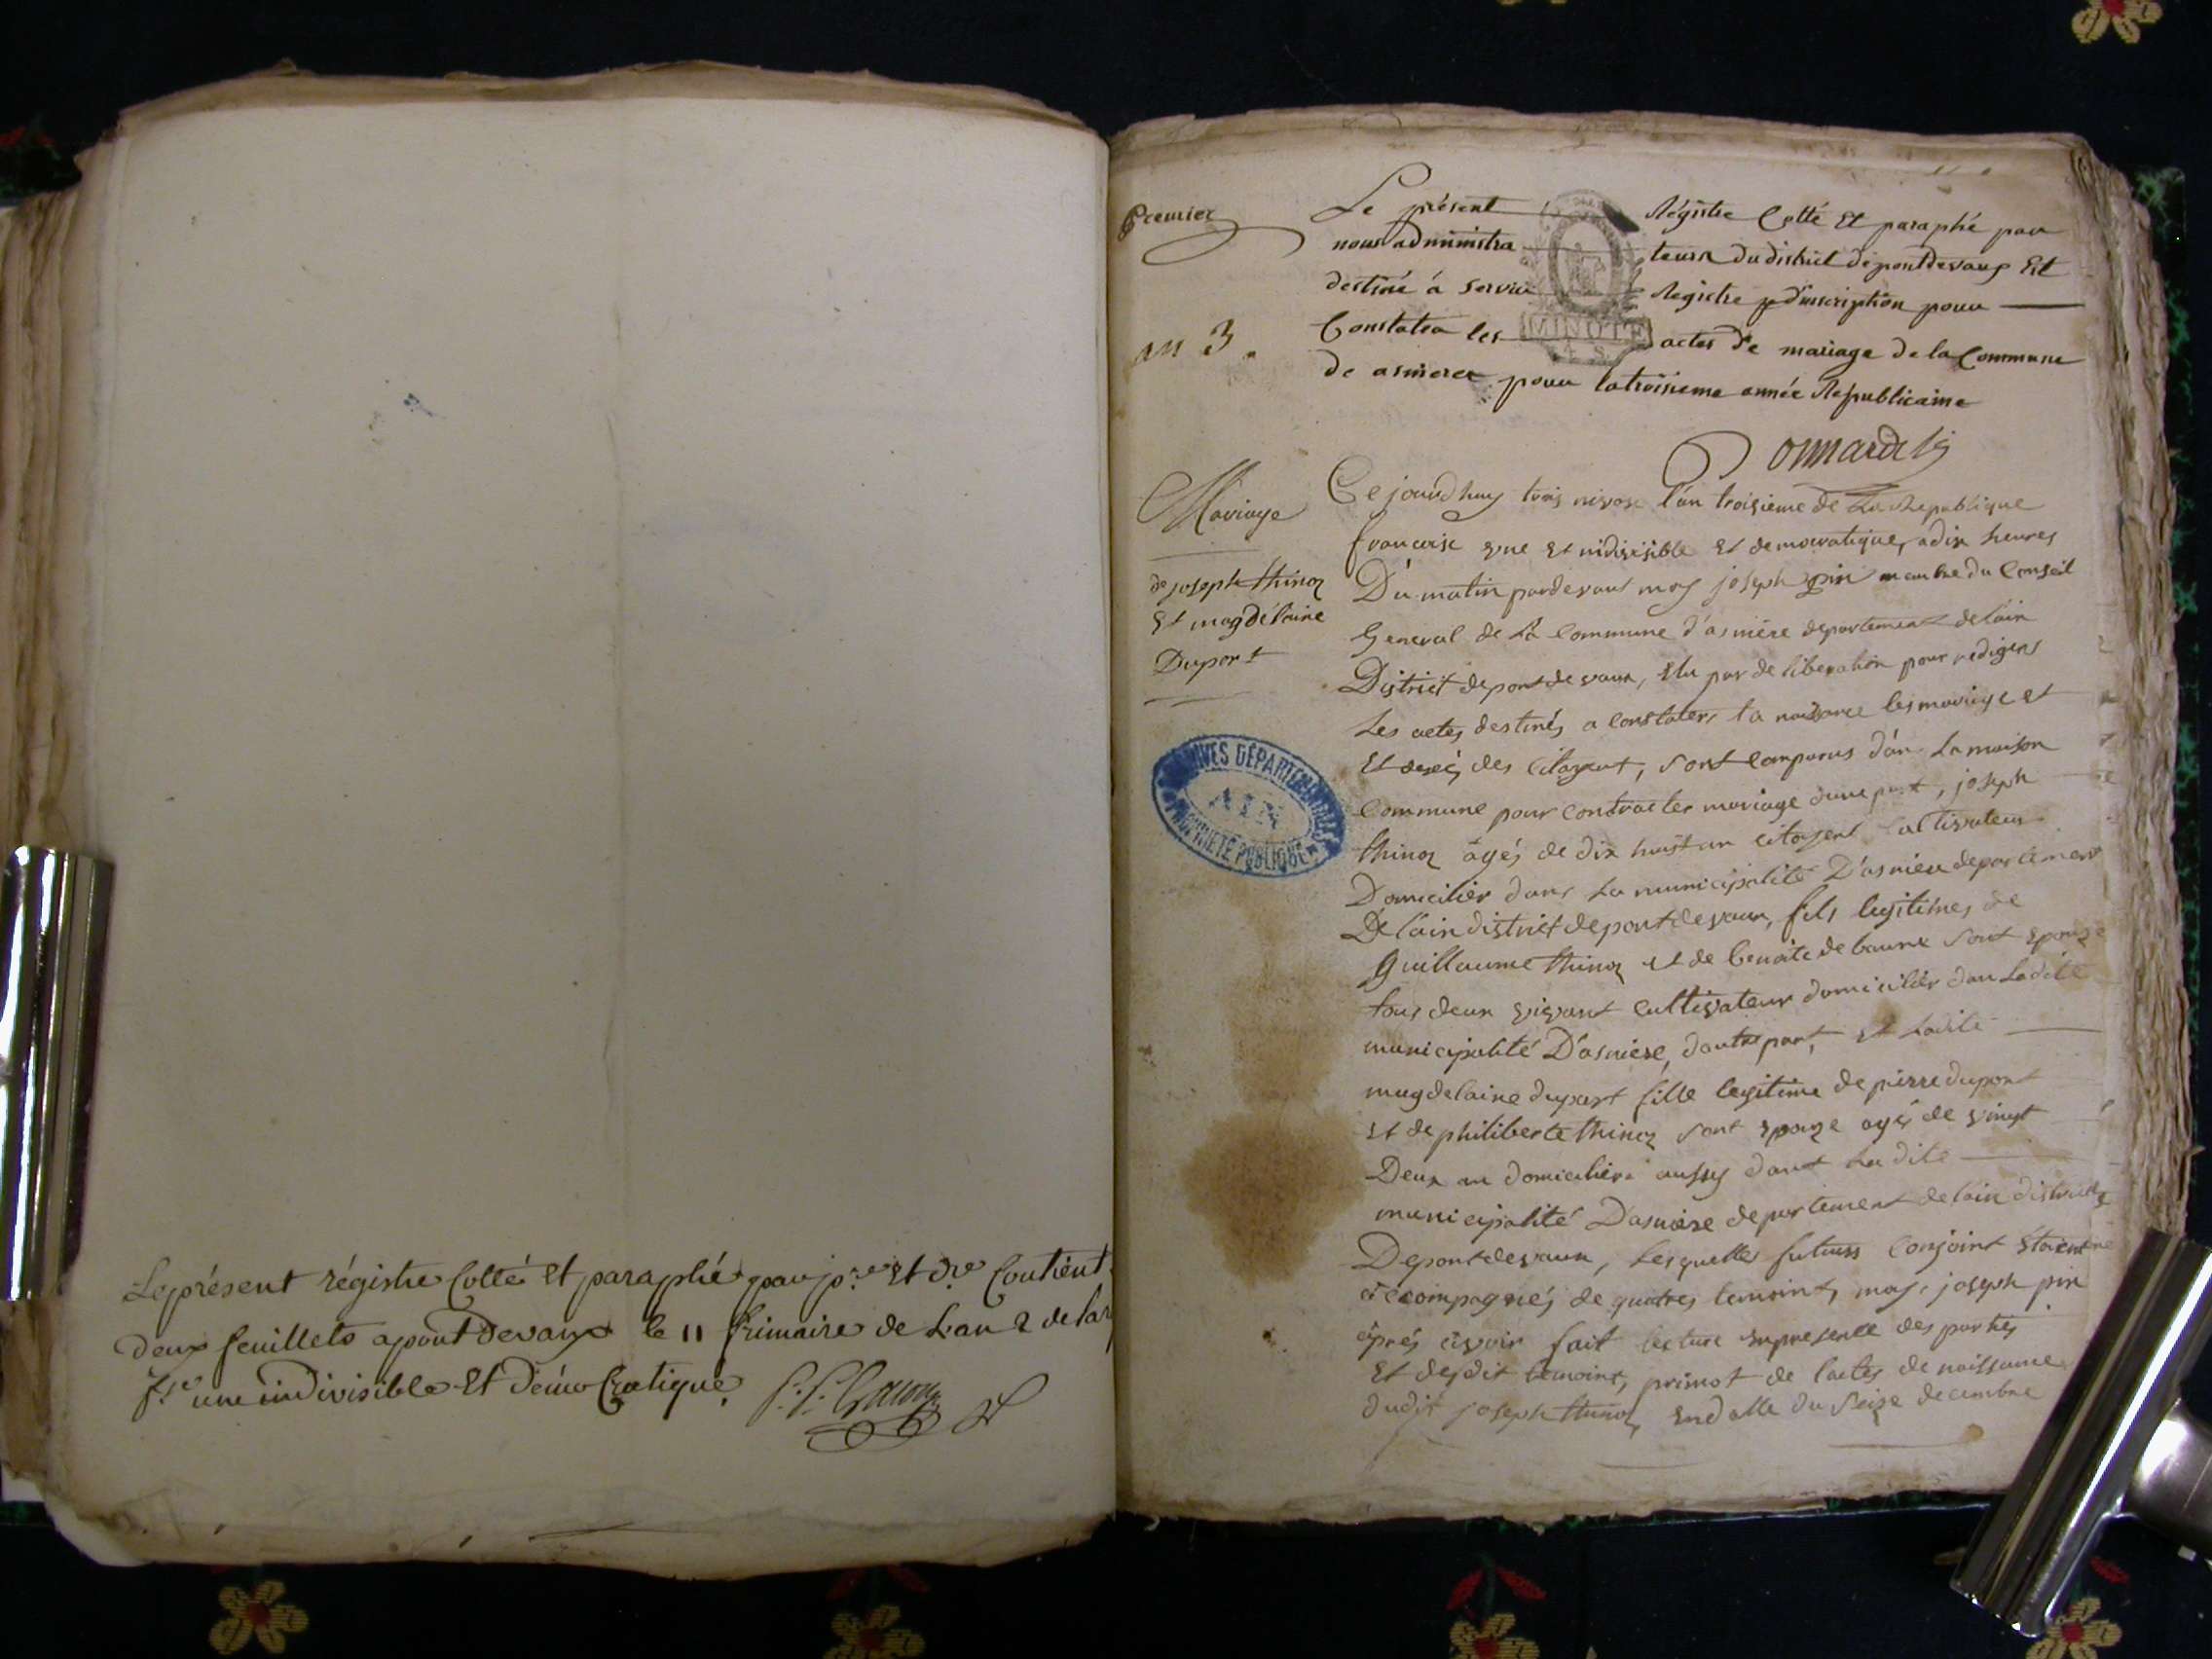 Le présent régistre Cotté Et paraphé par pr.re et dr.re Contient
deux feuillets a pont devaux le 11 frimaire de L'an 2 de la r
f.se une indivisible Et Démocratique.
Premier
an 3.
Le présent Régistre Cotté Et paraphé par
nous administra teurs du district de pontdevaux Est
destiné á servir Registre d'inscription pour
Constater les actes de mariage de la Commune
de asnieres pour la troisieme année Républicaine
MINUTE
4 S.
Mariage
de joseph thinon
Et magdelaine
Dupont
ARCHIVES DÉPARTEMENTALES
AIN
PROPRIÉTÉ PUBLIQUE
Ce jourdhuy trois nivose l'an troisieme de La Republique
francaise une et indivisible et democratique, a dix heures
Du matin pardevant moy joseph pin membre du Conseil
General de la Commune d'asniere departement de lain
District de pont de vaux, elu par deliberation pour rediger
Les actes destinés a constater, la naissance les mariage et
Et decés des citoyent, sont comparus dan La maison
Commune pour contracter mariage dune part, joseph
thinon agés de dix huit an citoyent Cultivateur
Domicilier dans La municipalité D'asniere departement
De lain district de pont de vaux, fils legitimes de
Guillaume thinon et de benoite de baune sont epouze
tous deux vivant cultivateur domicilier dan Ladite
municipalité D'asniere, dautre part, et Ladite
magdelaine dupont fille legitime de pierre dupont
et de philiberte thinon sont epouze agés de vingt
Deux an domicilier aussy dant La dite
municipalité D'asniere departement de lain district
De pont de vaux, Lesquelles futurs Conjoint etoient
accompagnés de quatres temoints, moy, joseph pin
aprés avoir fait lecture enpresence des parties
Et desdit temoints, primot de lactes de naissance
dudit joseph thinon en datte du seize decembre